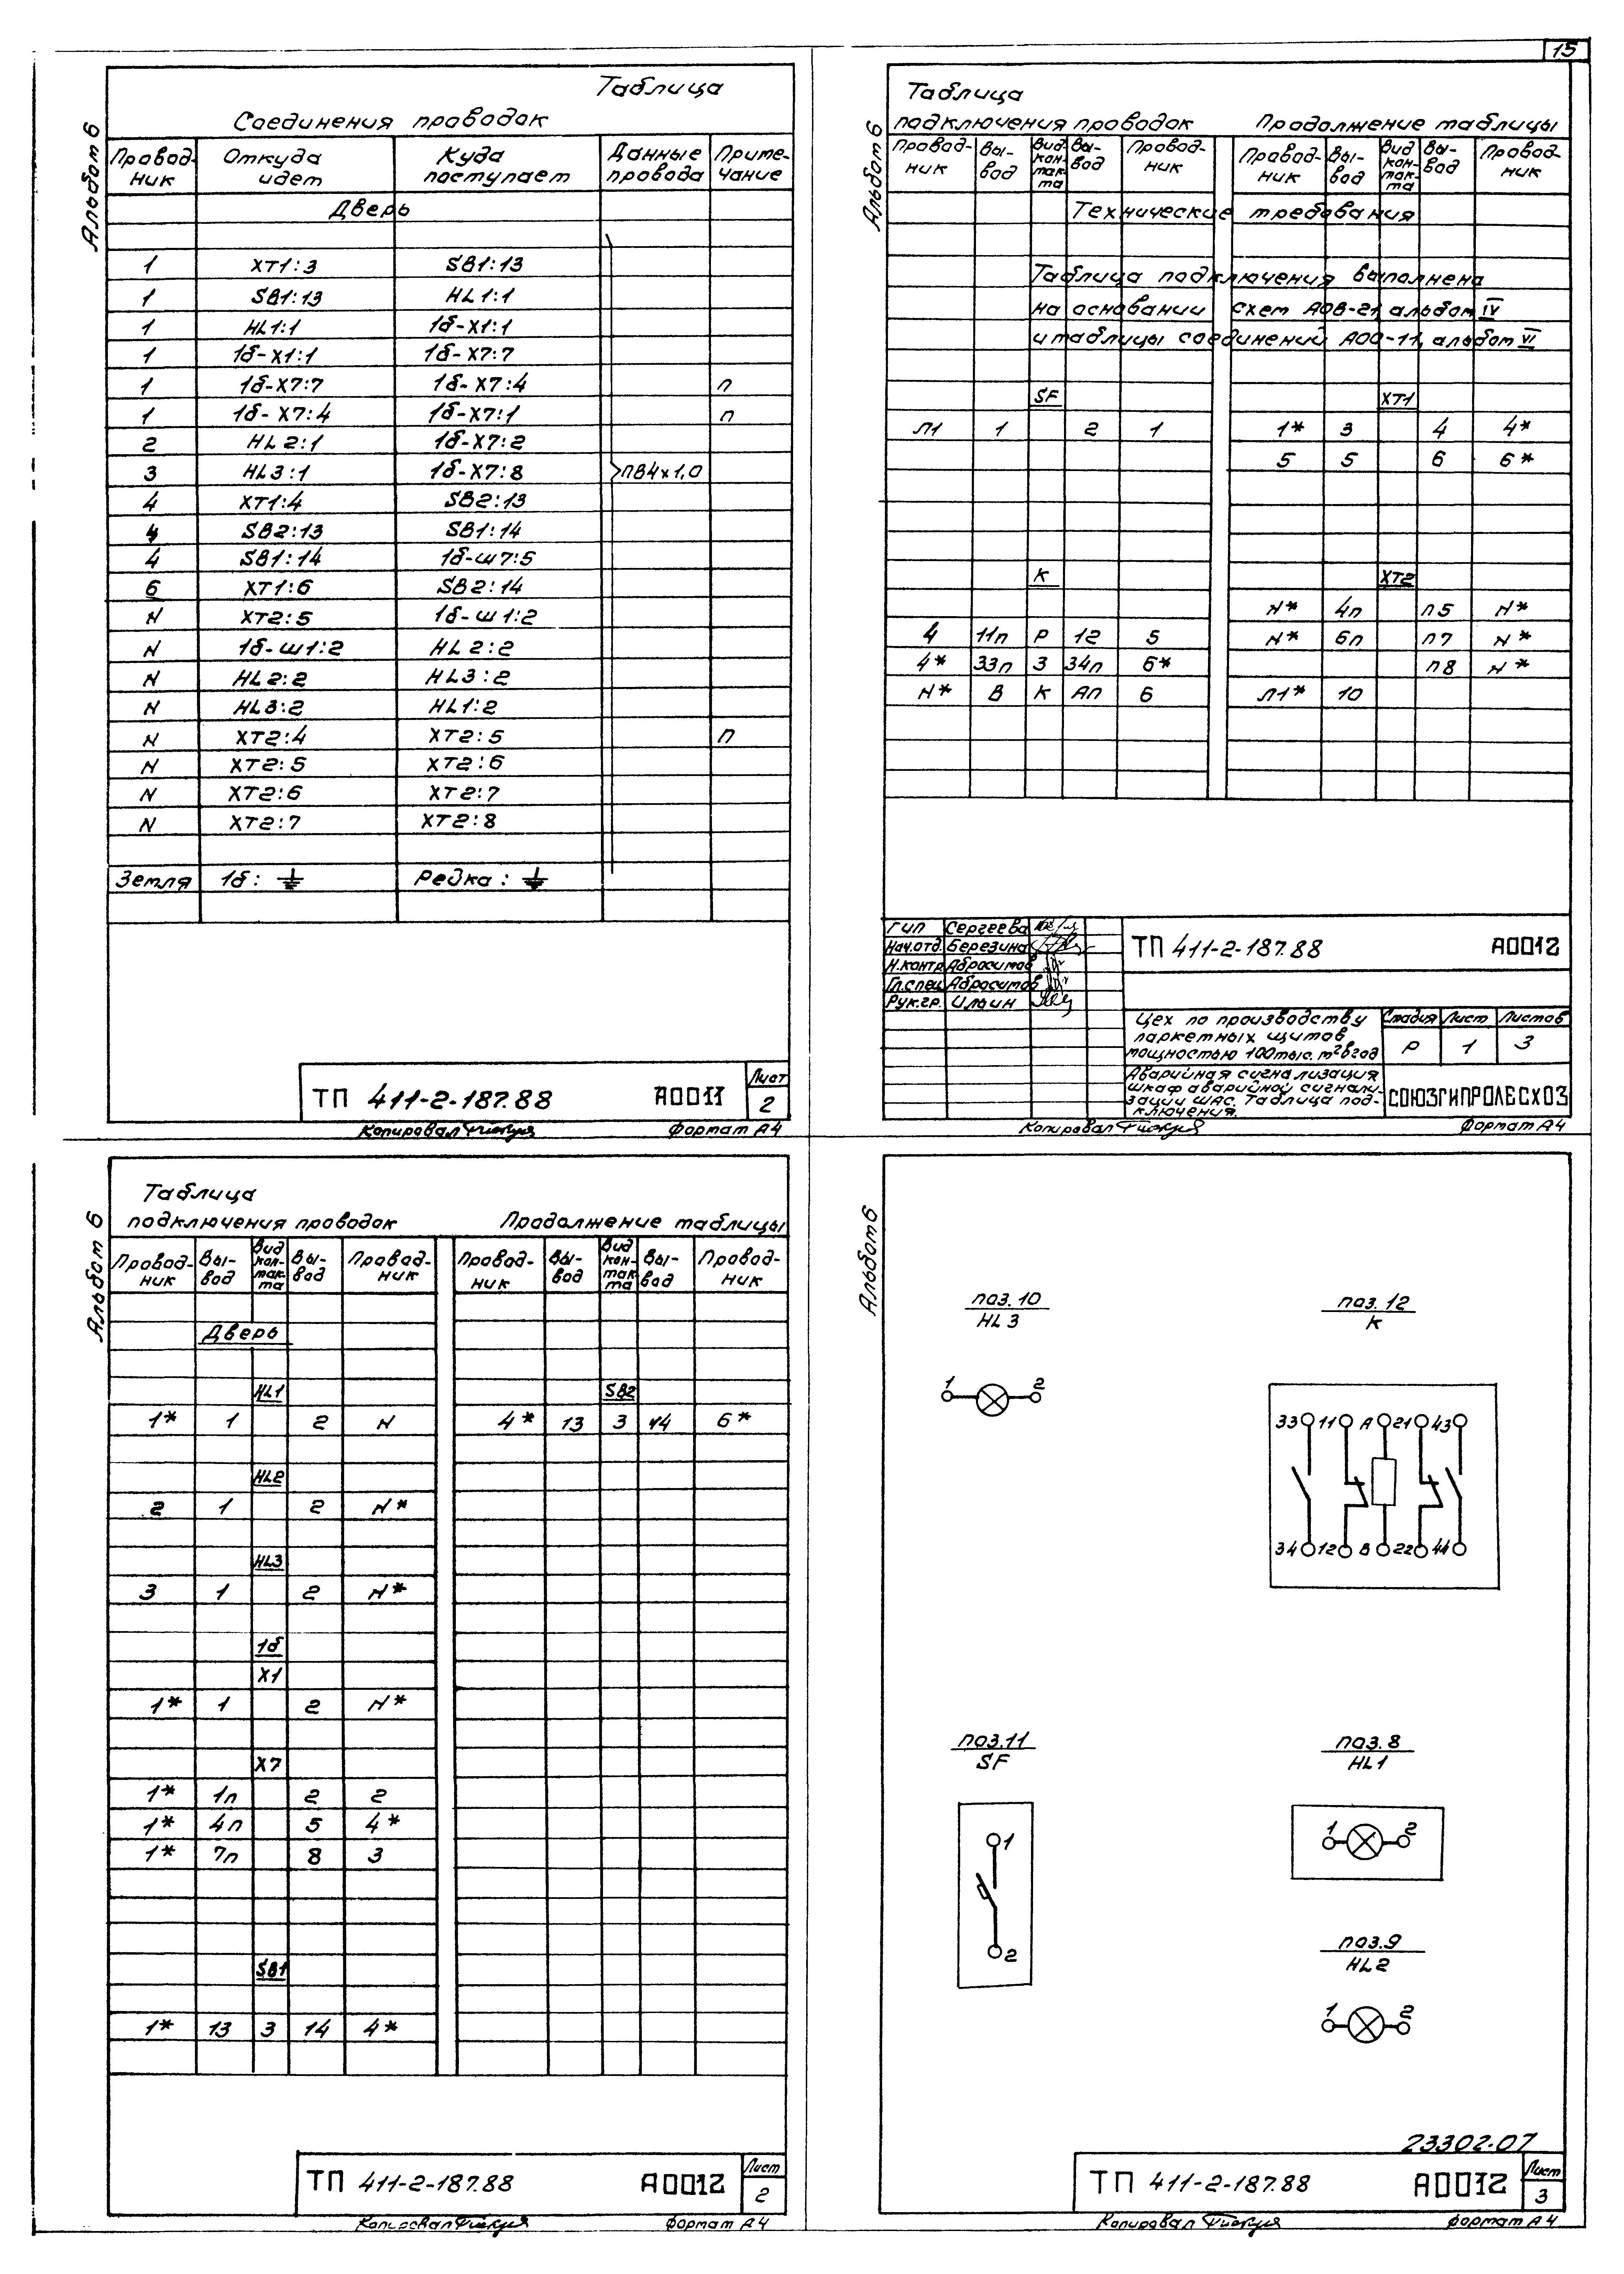 15
Альбом 6
Таблица
Соединения проводок
Провод-ник Откуда идет Куда поступает Данные провода Приме-чание
Дверь
1 XT1:3 SB1:13
1 SB1:13 HL1:1
1 HL1:1 1б-X1:1
1 1б-X1:1 1б-X7:7
1 1б-X7:7 1б-X7:4 п
1 1б-X7:4 1б-X7:1 п
2 HL2:1 1б-X7:2
3 HL3:1 1б-X7:8 ПВ4x1,0
4 XT1:4 SB2:13
4 SB2:13 SB1:14
4 SB1:14 1б-ш7:5
6 XT1:6 SB2:14
N XT2:5 1б-ш1:2
N 1б-ш1:2 HL2:2
N HL2:2 HL3:2
N HL3:2 HL1:2
N XT2:4 XT2:5 п
N XT2:5 XT2:6
N XT2:6 XT2:7
N XT2:7 XT2:8
Земля 1б: ⏚ Рейка: ⏚
ТП 411-2-187.88 АОО11 Лист 2
Копировал
Формат А4
Альбом 6
Таблица
подключения проводок Продолжение таблицы
Провод-ник Вы-вод Вид кон-так-та Вы-вод Провод-ник Провод-ник Вы-вод Вид кон-так-та Вы-вод Провод-ник
Технические требования
Таблица подключения выполнена
на основании схем АОВ-21, альбом IV
и таблицы соединений АОО-11, альбом VI
SF XT1
Л1 1 2 1 1* 3 4 4*
5 5 6 6*
К XT2
N* 4п п5 N*
4 11п Р 12 5 N* 6п п7 N*
4* 33п З 34п 6* п8 N*
N* В К Ап 6 Л1* 10
ГИП Сергеева
Нач.отд. Березина
Н.контр. Абросимов
Гл.спец. Абросимов
Рук.гр. Ильин
ТП 411-2-187.88 АОО12
Цех по производству
паркетных щитов
мощностью 100тыс. м² в год
Стадия Лист Листов
Р 1 3
Аварийная сигнализация
шкаф аварийной сигнали-
зации ШАС. Таблица под-
ключения.
СОЮЗГИПРОЛЕСХОЗ
Копировал
Формат А4
Альбом 6
Таблица
подключения проводок Продолжение таблицы
Провод-ник Вы-вод Вид кон-так-та Вы-вод Провод-ник Провод-ник Вы-вод Вид кон-так-та Вы-вод Провод-ник
Дверь
HL1 SB2
1* 1 2 N 4* 13 З 14 6*
HL2
2 1 2 N*
HL3
3 1 2 N*
1б
X1
1* 1 2 N*
X7
1* 1п 2 2
1* 4п 5 4*
1* 7п 8 3
SB1
1* 13 З 14 4*
ТП 411-2-187.88 АОО12 Лист 2
Копировал
Формат А4
Альбом 6
поз.10
HL3
1 2
поз.12
К
33 11 А 21 43
34 12 В 22 44
поз.11
SF
1
2
поз.8
HL1
1 2
поз.9
HL2
1 2
23302-07
ТП 411-2-187.88 АОО12 Лист 3
Копировал
Формат А4